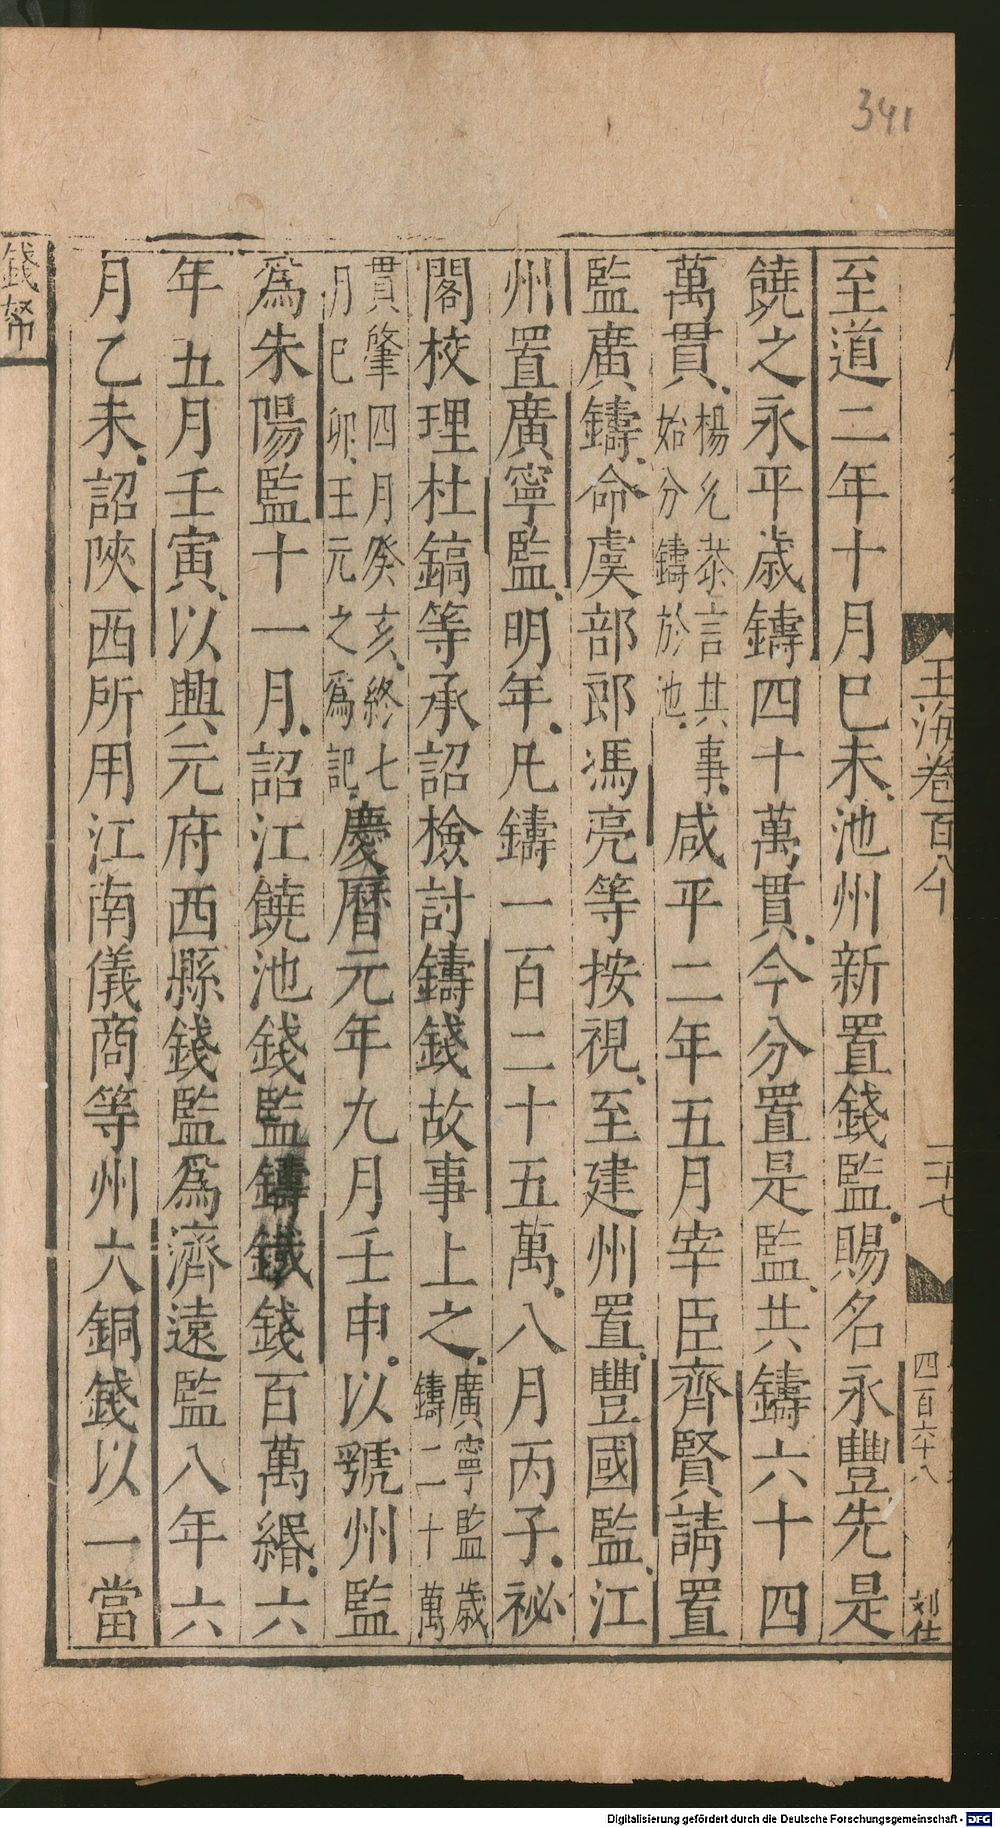 341
玉海卷百八十
二十七
四百六十八
刘仕
至道二年十月已未池州新置錢監賜名永豐先是
饒之永平歲鑄四十萬貫今分置是監共鑄六十四
萬貫楊允恭言其事始分鑄於池咸平二年五月宰臣齊賢請置
監廣鑄命虞部郎馮亮等按視至建州置豐國監江
州置廣寧監明年凡鑄一百二十五萬八月丙子祕
閣校理杜鎬等承詔檢討鑄錢故事上之廣寧監歲鑄二十萬
貫肇四月癸亥終七月已卯王元之爲記慶曆元年九月壬申以虢州監
爲朱陽監十一月詔江饒池錢監鑄鐵錢百萬緡六
年五月壬寅以興元府西縣錢監爲濟遠監八年六
月乙未詔陝西所用江南儀商等州大銅錢以一當
錢幣
Digitalisierung gefördert durch die Deutsche Forschungsgemeinschaft - DFG